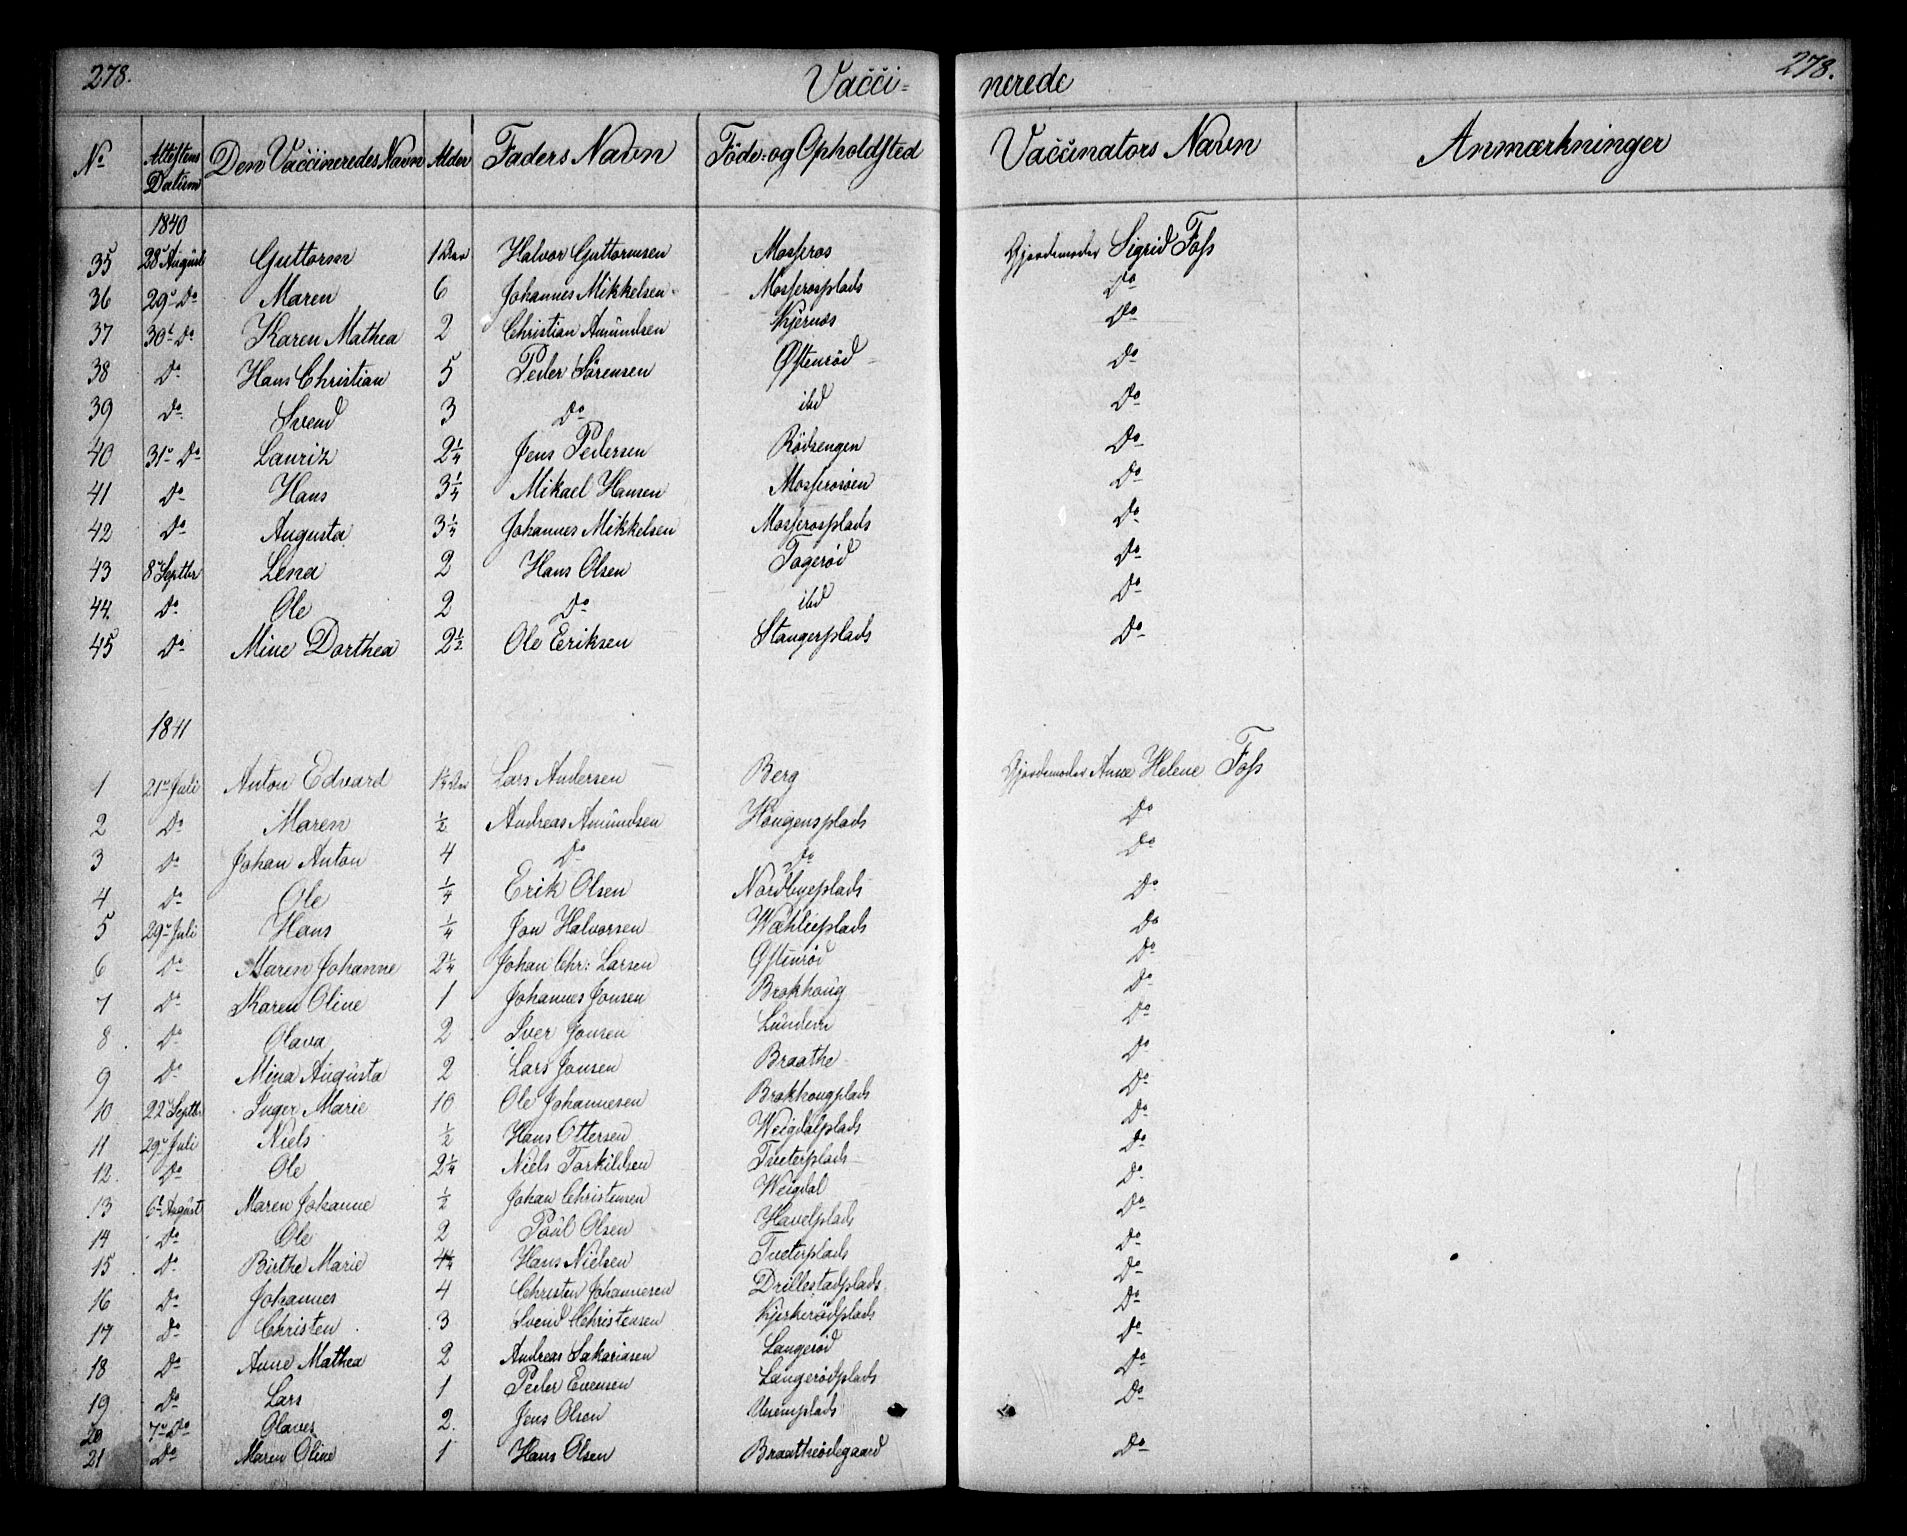 278. Vacci= nerede 278.
No Attestens Datum Den Vaccineredes Navn Alder Faders Navn Föde= og Opholdsted Vaccinators Navn Anmærkninger
1840
35 28de August Guttorm 1 Aar Halvor Guttormsen Mosseros Gjordemoder Sigrid Foss
36 29de Do Maren 6 Johannes Mikkelsen Mosserosplads Do
37 30te Do Karen Mathea 2 Christian Amundsen Kjernæs Do
38 Do Hans Christian 5 Peder Sörensen Østenrød Do
39 Do Svend 3 Do ibd Do
40 31te Do Lauriz 2 1/4 Jens Pedersen Rödsengen Do
41 Do Hans 3 1/4 Mikael Hansen Do
42 Do Augusta 3 1/4 Johannes Mikkelsen Mosserosplads Do
43 8de Septbr Lena 2 Hans Olsen Fagerød Do
44. Do Ole 2 Do ibd Do
45 Do Mine Dorthea 2 1/2 Ole Eriksen Stangerplads Do
1841
1 21de Juli Anton Edvard Lars Andersen Berg Gjordemoder Anne Helene Foss
2 Do Maren 1/2 Andreas Amundsen Haugensplads Do
3 Do Johan Anton 4 Do Do Do
4 Do Ole 1/4 Erik Olsen Nordbyeplads Do
5 29de Juli Hans 1/4 Jon Halvorsen Wæhlieplads Do
6 Do Maren Johanne 2 1/4 Johan Chr: Larsen Østenrød Do
7 Do Karen Oline 1 Johannes Jonsen Brokhoug Do
8 Do Olava 2 Iver Jonsen Lunden Do
9 Do Mina Augusta 2 Lars Jonsen Braathe Do
10 22de Septbr Inger Marie 10 Ole Johannesen Brokhougplads Do
11 29de Juli Niels 1/2 Hans Ottersen Weigdalplads Do
12. Do Ole 2 1/4 Niels Torkildsen Tueterplads Do
13 6te August Maren Johanne 1/2 Johan Christensen Weigdal Do
14 Do Ole 2 Paul Olsen Havelplads Do
15 Do Birthe Marie Hans Nielsen Tueterplads Do
16 Do Johannes 4 Christen Johannesen Drillestadplads Do
17 Do Christen 3 Svend Christensen Kjerkerödplads Do
18 Do Anne Mathea 2 Andreas Sakariasen Langerød Do
19 Do Lars 1 Peder Evensen Langerødplads Do
20 7de Do Olaves 2. Jens Olsen Do
21 Do Maren Oline 1 Hans Olsen Braatheödegaard Do